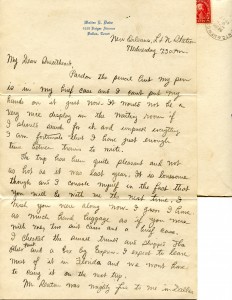 Dallas, Texas
New Orleans, L & N Station
Wednesday 7:30 P.M.
My Dear Sweetheart:
Pardon the pencil but my pen
is in my brief case and I can't put my
hands on it just now. It would not be a
very nice display in the waiting room if
I should send for it and unpack everything.
I am fortunate that I have just enough
time between trains to write.
The trip has been quite pleasant and not
as hot as it was last year. It is lonesome
though and I console myself in the fact that
you will be with me the next time. I
wish you were along now. I guess I have
as much hand luggage as if you were
with me, two suit cases and a brief case.
I checked the trunk and shipped the
and a box by Express. I expect to leave
most of it in Florida and we wont have
to bring it on the next trip.
Mr. was mighty fine to me in Dallas